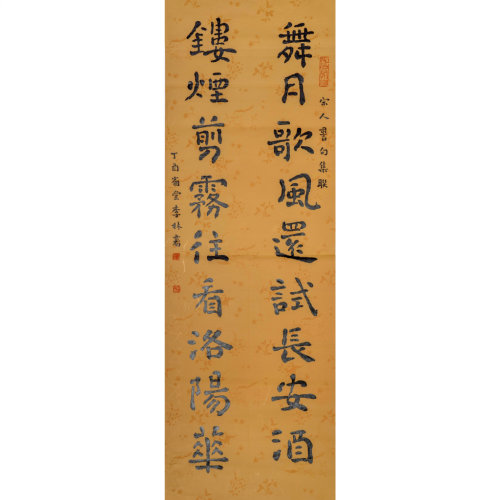 舞月歌風還試長安酒
宋人詞句集聯
鏤煙剪霧往看洛陽華
丁酉